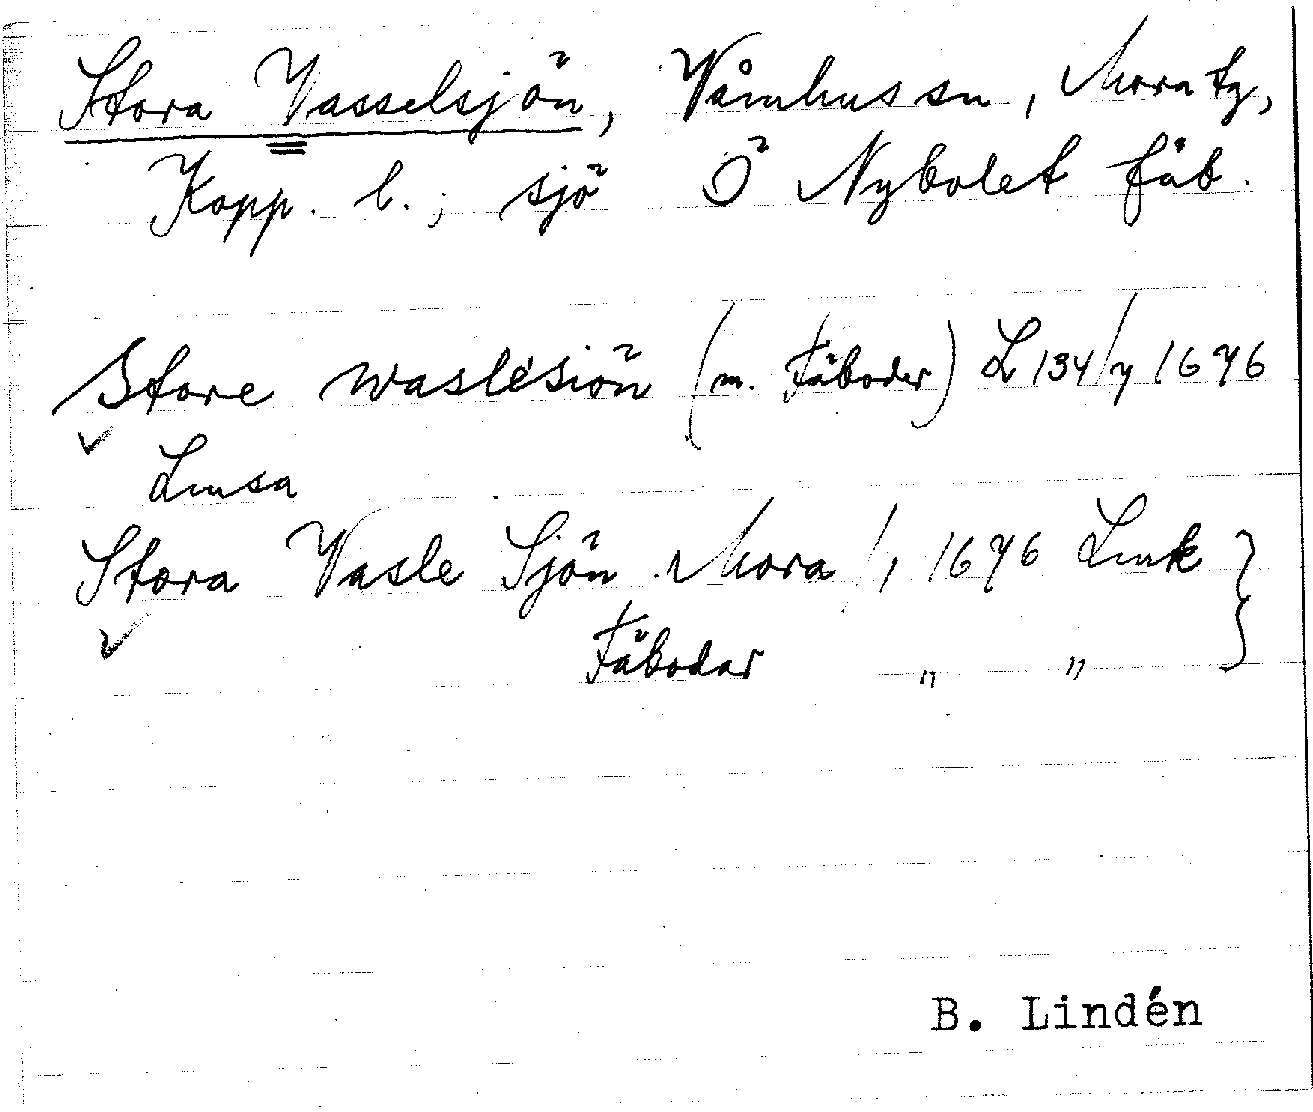 Stora Vasselsjön, Våmhus sn, Mora tg,
Kopp. l.; sjö Ö Nybolet fäb.
Store waslesiön (m. Fäboder) L 134/y 1696
Lmsa
Stora Vasle Sjön Mora /, 1696 Lmk }
Fäbodar " "
B. Lindén